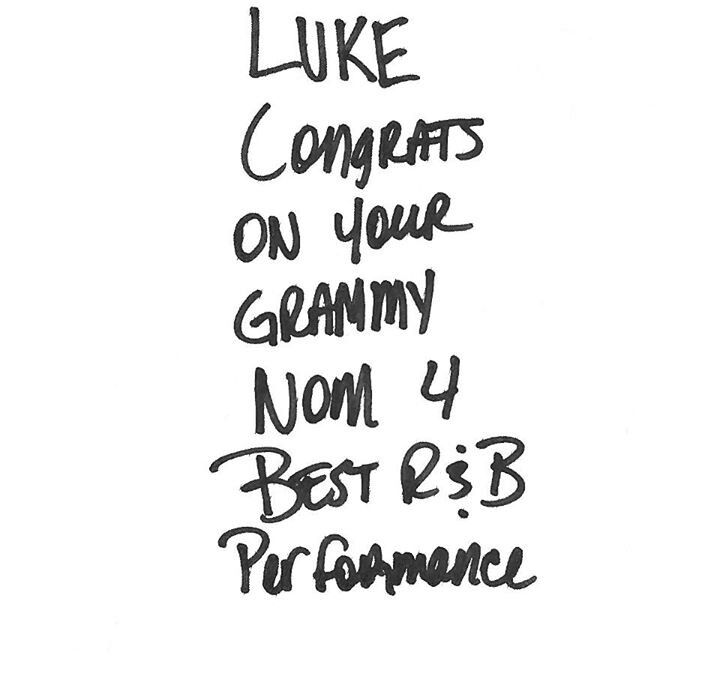 LUKE
CongRATS
ON YouR
GRAMMY
Nom 4
BEST R&B
Performance